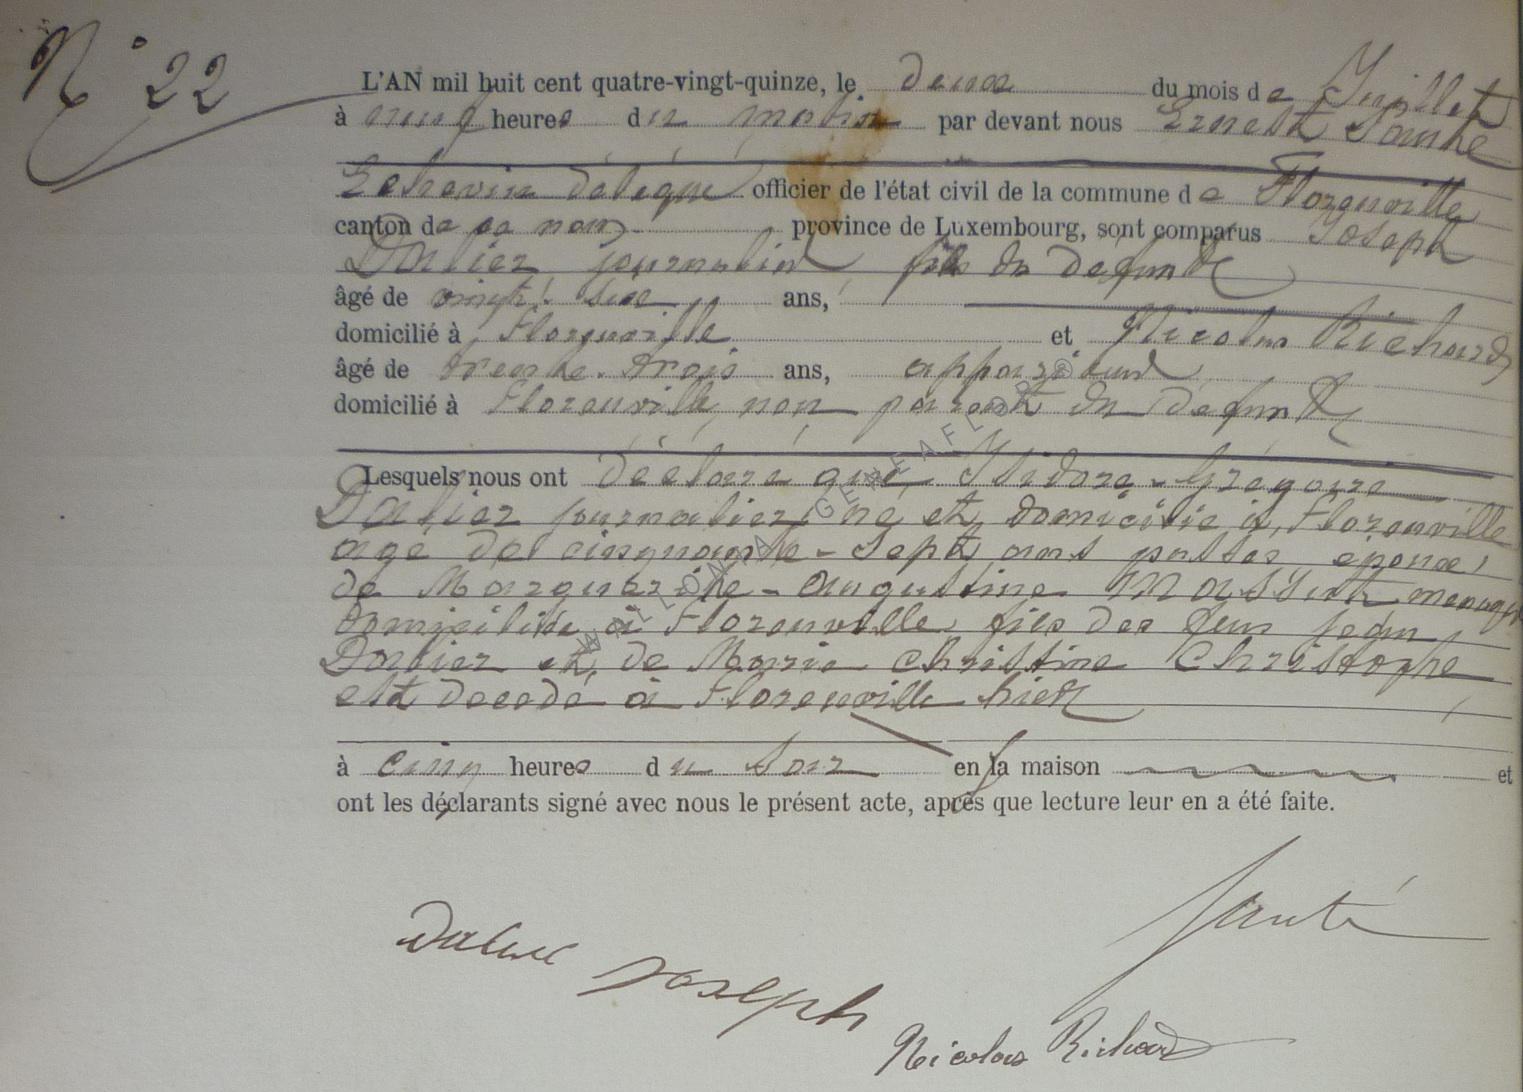 N° 22
L'AN mil huit cent quatre-vingt-quinze, le deux du mois de Juillet
à neuf heures du matin par devant nous Ernest Santé
Echevin délégué officier de l'état civil de la commune de Florenville
canton de ce nom province de Luxembourg, sont comparus Joseph
Dalier journalier fils du defunt
âgé de vingt-six ans,
domicilié à Florenville et Nicolas Richard
âgé de trente-trois ans, appariteur
domicilié à Florenville non parent du defunt
Lesquels nous ont déclaré que Isidore-Grégoire
Dalier journalier né et domicilié à Florenville
agé de cinquante-sept ans passés, époux
de Marguerite-Augustine Massut
domiciliée à Florenville, fils des feus Jean
Dalier et de Marie Christine Christophe
est décédé à Florenville hier
à cinq heures du soir en la maison et
ont les déclarants signé avec nous le présent acte, après que lecture leur en a été faite.
Santé
Joseph
Nicolas Richard
WALLONIA GENEAFLOR